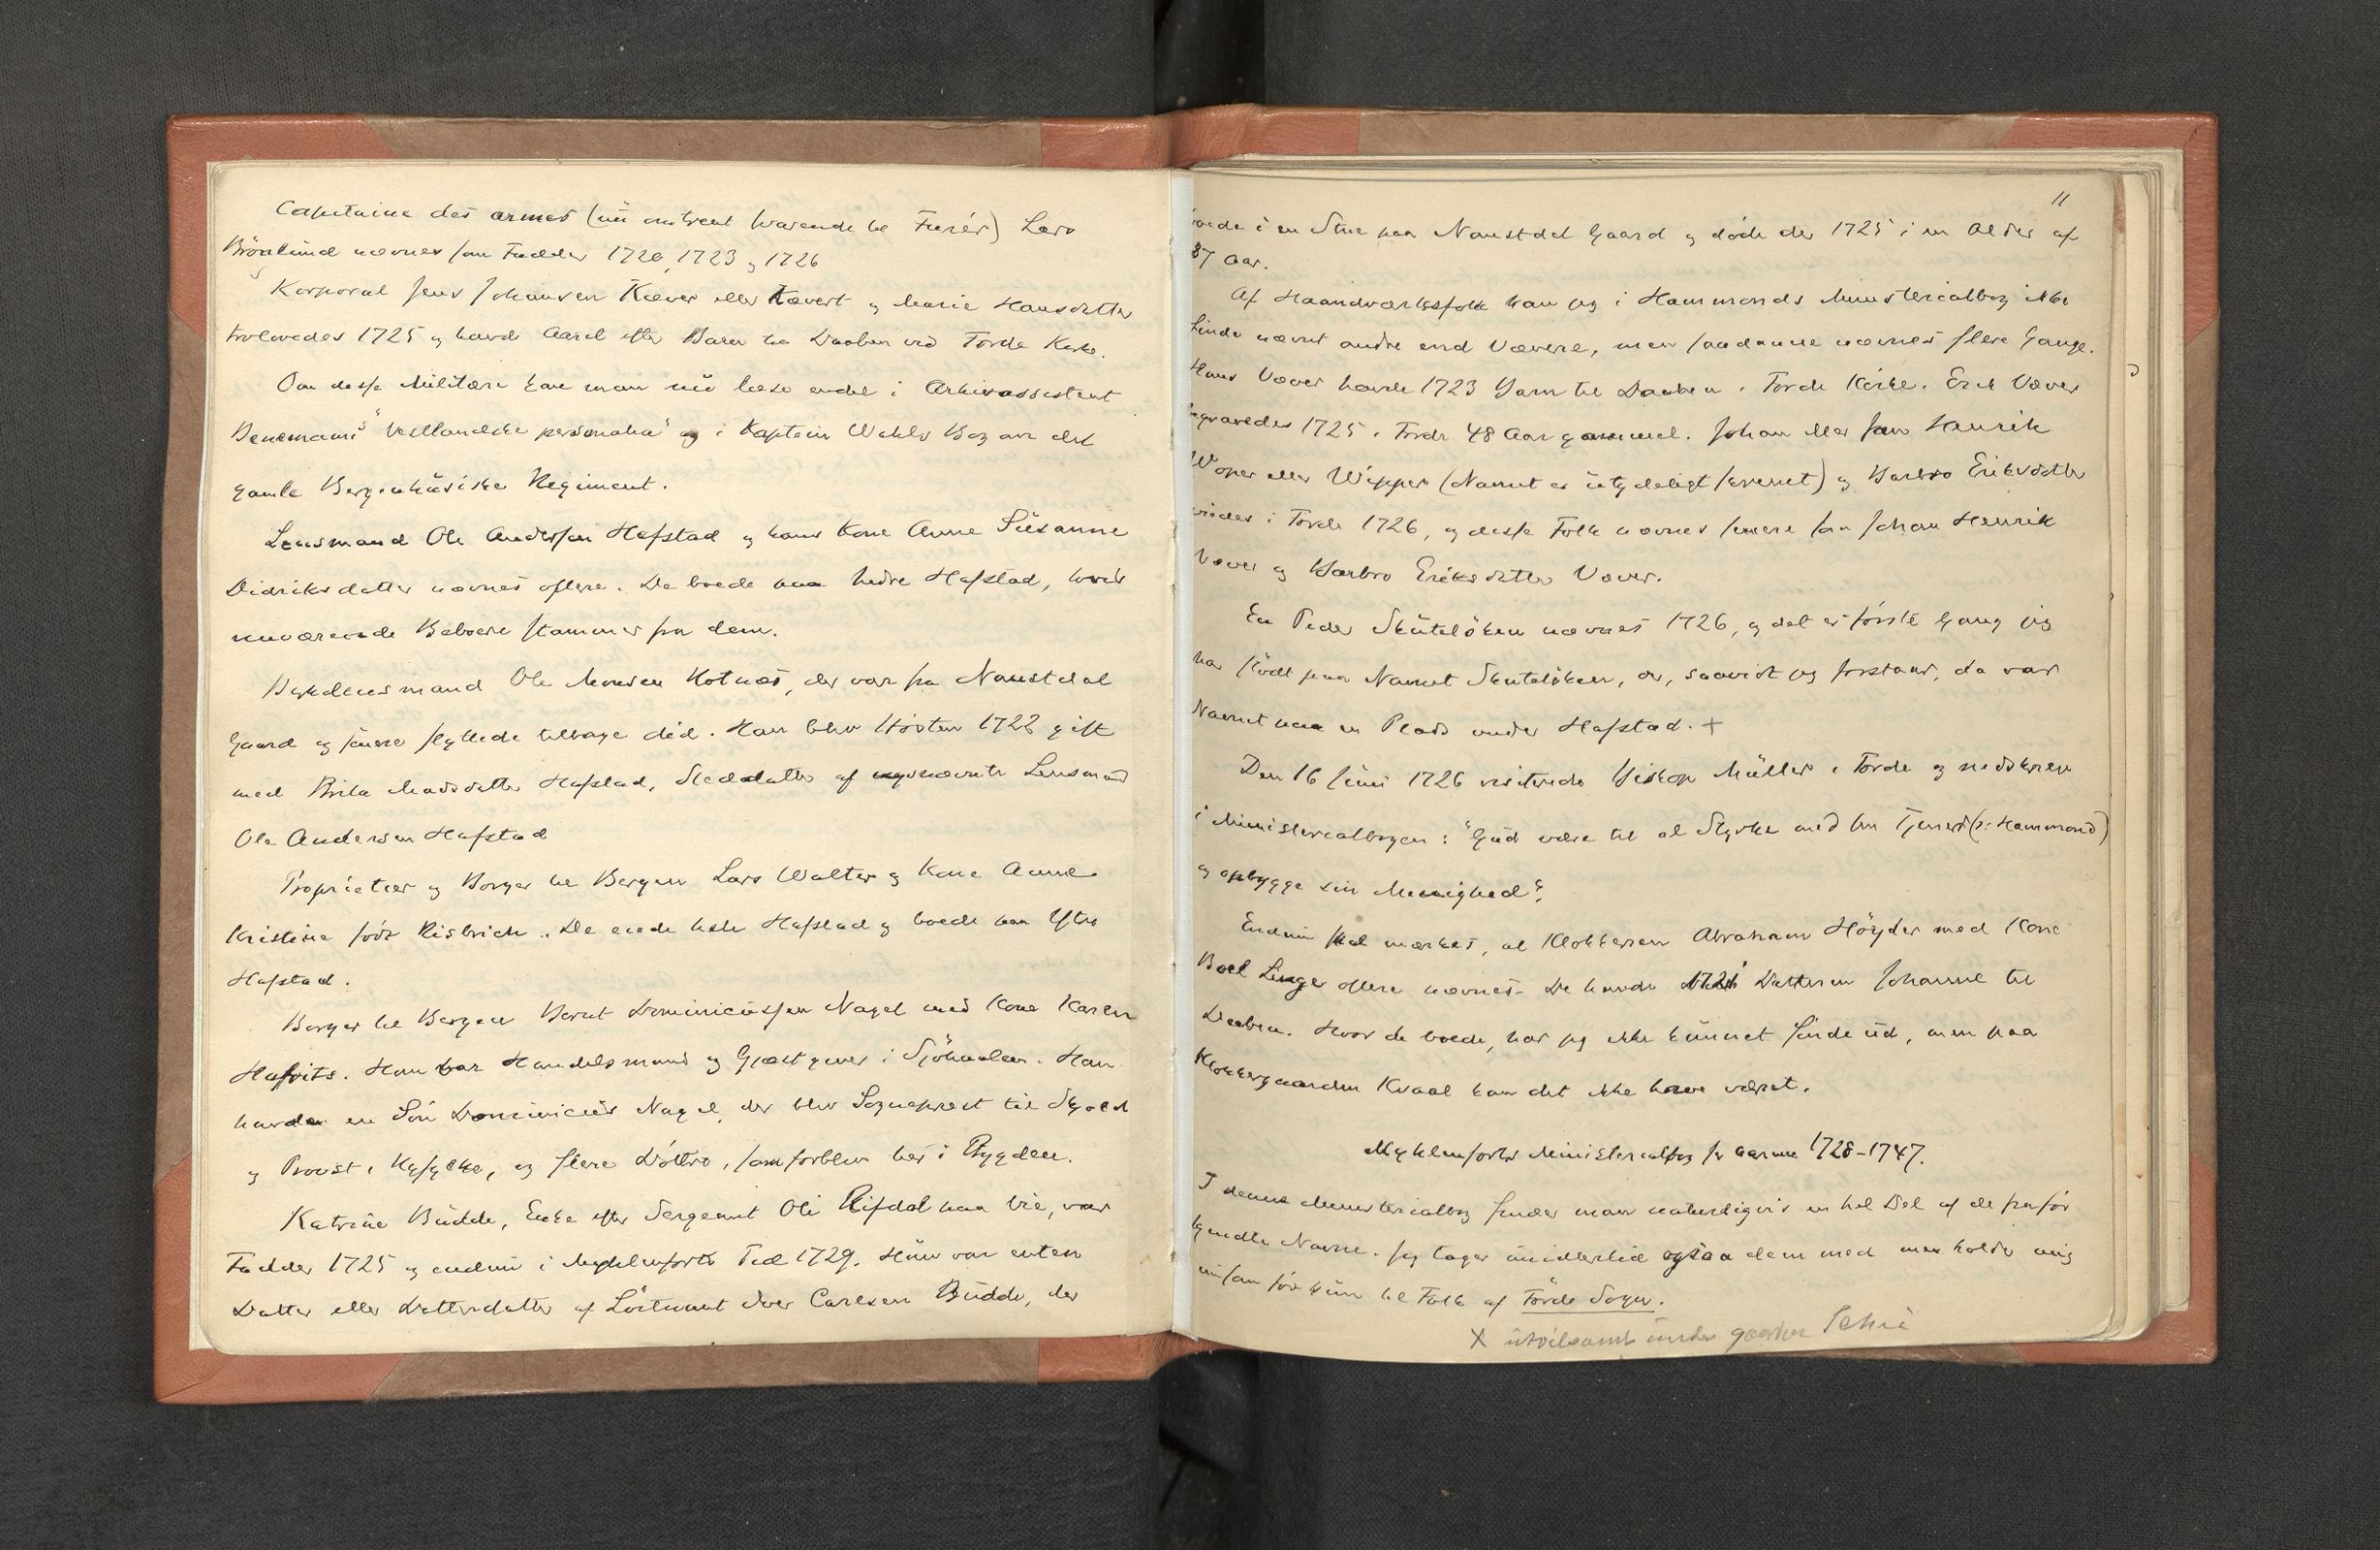 Capitaine des armes (nu omtrent svarende til Furér) Lars
Brönlund nævnes som Fadder 1720, 1723 og 1726
Korporal Jens Johansen Kæver eller Kævert og Marie Hansdatter
trolovedes 1725 og havde Aaret efter Barn til Daaben ved Förde Kirke.
Om desse Militære kan man nu læse endel i Arkivassistent
"Vestlandske personalia" og i Kaptein Bog om det
gamle Bergenhusiske Regiment.
Lensmand Ole Anderssen Hafstad og hans Kone Anne Susanne
Didriksdatter nævnes oftere. De boede paa Nedre Hafstad, hvis
nuværende Beboere stammer fra dem.
Bygdelensmand Ole Monsen Hotnes, der var fra Naustdal
Gaard og senere flyttede tilbage did. Han blev Hösten 1722 gift
med Brita Madsdatter Hafstad, Steddatter af nysnævnte Lensmand
Ole Andersen Hafstad
Proprietær og Borger til Bergen Lars Walter og Kone Anne
Kristine född Risbrich. De eiede hele Hafstad og boede paa Ytre
Hafstad.
Borger til Bergen Bernt Dominicussen Nagel med Kone Karen
Hafvits. Han var Handelsmand og Gjæstgiver i Sjöhaalen. Han
havde en Sön Dominicus Nagel, der blev Sogneprest til Skjold
og Provst i Ryfylke, og flere Döttre, som forblev her i Bygden.
Katrine Budde, Enke efter Sergeant Ole Rifdal paa Vie, var
Fadder 1725 og endnu i Myklenforts Tid 1729. Hun var enten
Datter eller Datterdatter af Löitnant Iver Carlsen Budde, der
11
boede i en Stue paa Naustdal Gaard og döde der 1725 i en Alder af
87 Aar.
Af Haandværksfolk kan jeg i Hammonds Ministerialbog ikke
finde nævnt andre end Vævere, men saadanne nævnes flere Gange.
Hans Væver havde 1723 Barn til Daaben i Förde Kirke. Erik Væver
begravedes 1725 i Förde 48 Aar gammel. Johan eller Jan Henrik
Woper eller Wipper (Navnet er utydeligt skrevet) og Barbro Eriksdatter
viedes i Förde 1726, og desse Folk nævnes senere som Johan Henrik
Væver og Barbro Eriksdatter Væver.
En Peder Skutelöken nævnes 1726, og det er förste Gang jeg
har stödt paa Navnet Skutelöken, der, saavidt jeg forstaar, da var
Navnet paa en Plads under Hafstad. +
Den 16 Juni 1726 visiterede Biskop Müller i Förde og nedskrev
i Ministerialbogen: "Gud være til al Styrke med sin Tjener (ɔ: Hammond)
og opbygge sin Menighed".
Endnu skal mærkes, at Klokkeren Abraham Höyder med Kone
Boel Linge oftere nævnes. De havde 1721 Datteren Johanne til
Daaben. Hvor de boede, har jeg ikke kunnet finde ud, men paa
Klokkergaarden Kvaal kan det ikke have været.
Myklenforts Ministerialbog for Aarene 1728-1747.
I denne Ministerialbog finder man naturligvis en hel Del af de fra för
kjendte Navne. Jeg tager imidlertid ogsaa dem med men holder mig
nu som för kun til Folk af Förde Sogn.
X utvilsomt under gaarden